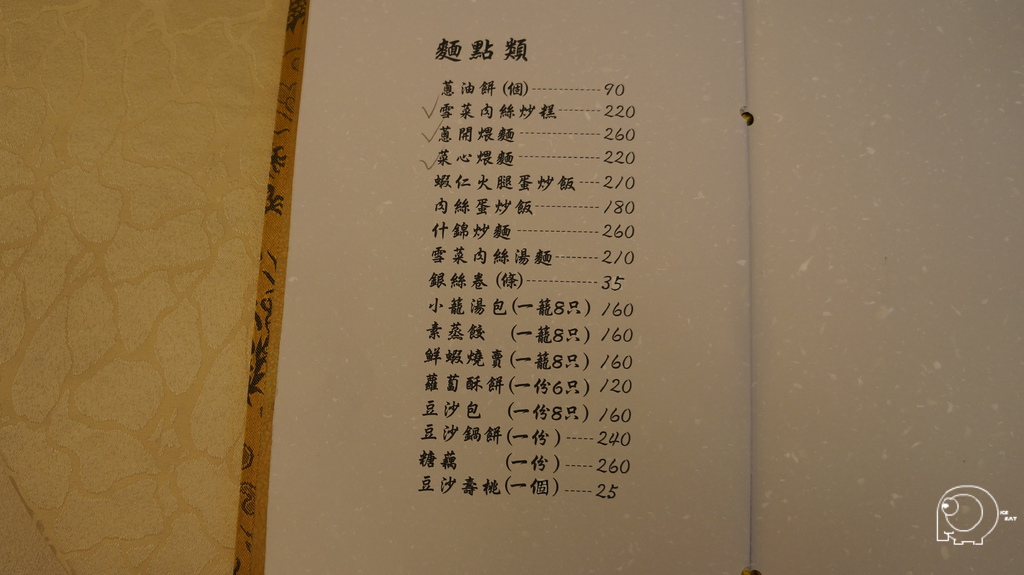 麵點類
蔥油餅(個)----------90
雪菜肉絲炒糕-------220
蔥開煨麵-------------260
菜心煨麵-------------220
蝦仁火腿蛋炒飯---210
肉絲蛋炒飯----------180
什錦炒麵-------------260
雪菜肉絲湯麵-------210
銀絲卷(條)----------35
小籠湯包(一籠8只) 160
素蒸餃 (一籠8只) 160
鮮蝦燒賣(一籠8只) 160
蘿蔔酥餅(一份6只) 120
豆沙包 (一份8只) 160
豆沙鍋餅(一份)-----240
糖藕 (一份)-----260
豆沙壽桃(一個)-----25